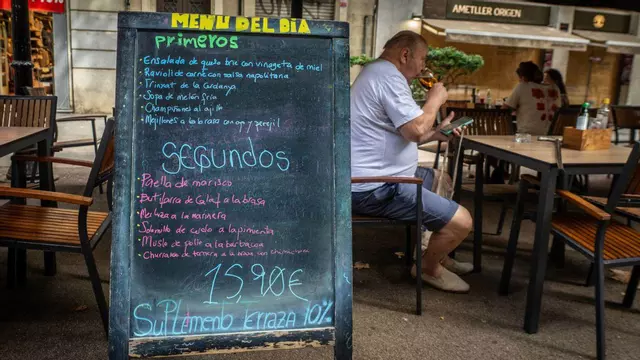 MENU DEL DIA
primeros
• Ensalada de queso brie con vinagreta de miel
• Ravioli de carne con salsa napolitana
• Trinxat de la Cerdanya
• Sopa de melón fría
• Champiñones al ajillo
• Mejillones a la brasa con ajo y perejil
SEGUNDOS
• Paella de marisco
• Butifarra de Calaf a la brasa
• Merluza a la marinera
• Solomillo de cerdo a la pimienta
• Muslo de pollo a la barbacoa
• Churrasco de ternera a la brasa con chimichurri
15,90€
Suplemento terraza 10%
AMETLLER ORIGEN